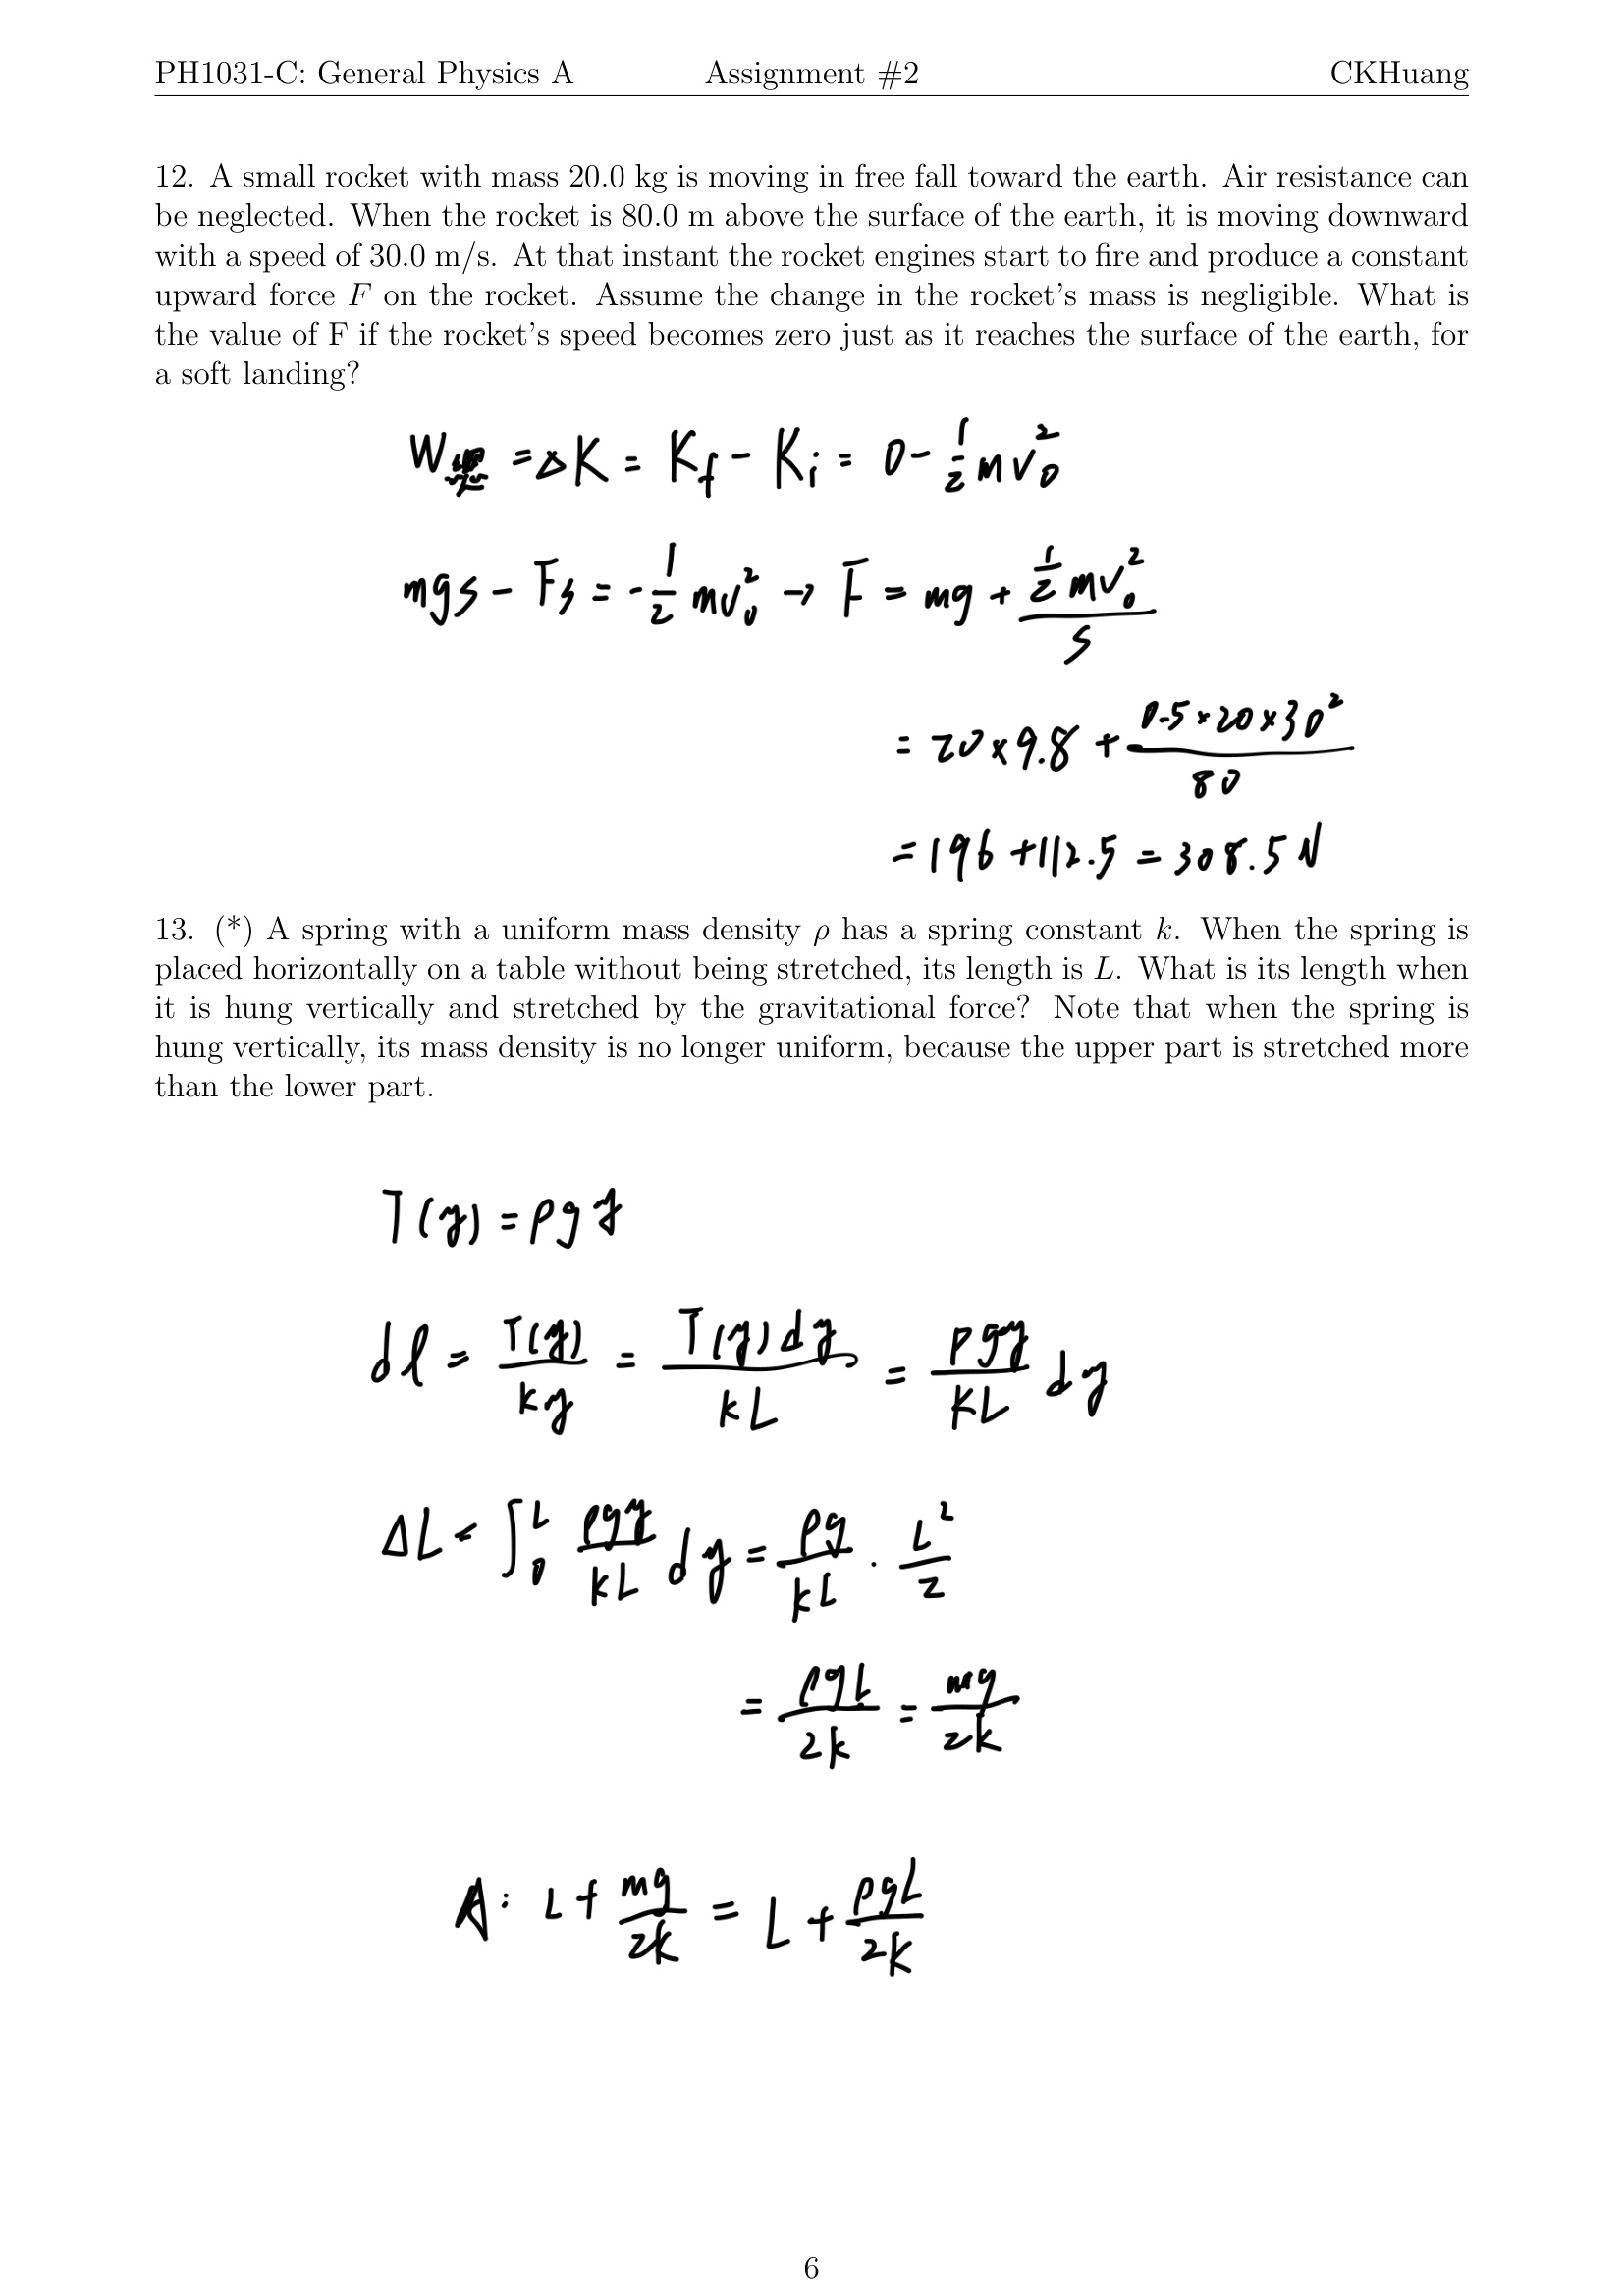 PH1031-C: General Physics A Assignment #2 CKHuang
12. A small rocket with mass 20.0 kg is moving in free fall toward the earth. Air resistance can
be neglected. When the rocket is 80.0 m above the surface of the earth, it is moving downward
with a speed of 30.0 m/s. At that instant the rocket engines start to fire and produce a constant
upward force F on the rocket. Assume the change in the rocket's mass is negligible. What is
the value of F if the rocket's speed becomes zero just as it reaches the surface of the earth, for
a soft landing?
W = ΔK = K_f - K_i = 0 - 1/2 mv_0^2
mgs - Fs = -1/2 mv_0^2 → F = mg + (1/2 mv_0^2)/s
= 20 × 9.8 + (0.5 × 20 × 30^2)/80
= 196 + 112.5 = 308.5 N
13. (*) A spring with a uniform mass density ρ has a spring constant k. When the spring is
placed horizontally on a table without being stretched, its length is L. What is its length when
it is hung vertically and stretched by the gravitational force? Note that when the spring is
hung vertically, its mass density is no longer uniform, because the upper part is stretched more
than the lower part.
T(y) = ρgy
dl = T(y)/ky = T(y)dy/kL = ρgy/kL dy
ΔL = ∫_0^L ρgy/kL dy = ρg/kL · L^2/2
= ρgL/2k = mg/2k
A: L + mg/2k = L + ρgL/2k
6